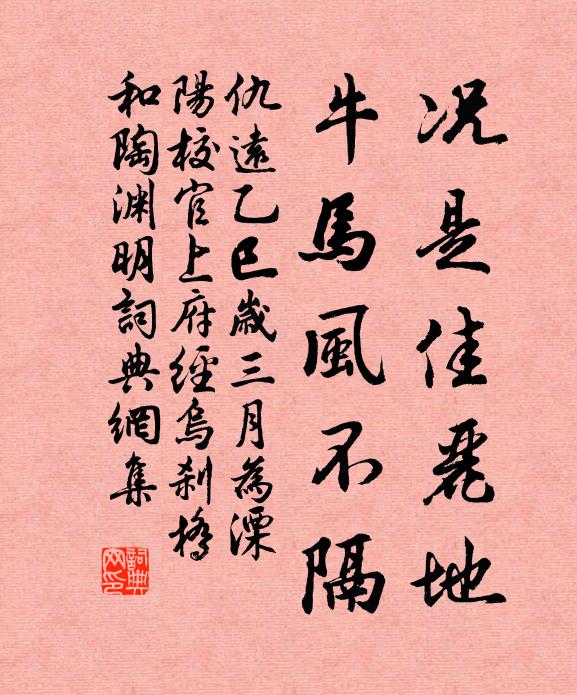 况是佳麗地
牛馬風不隔
仇遠乙巳歲三月為溧
陽校官上府經烏刹橋
和陶淵明詞典網集
詞典
网印